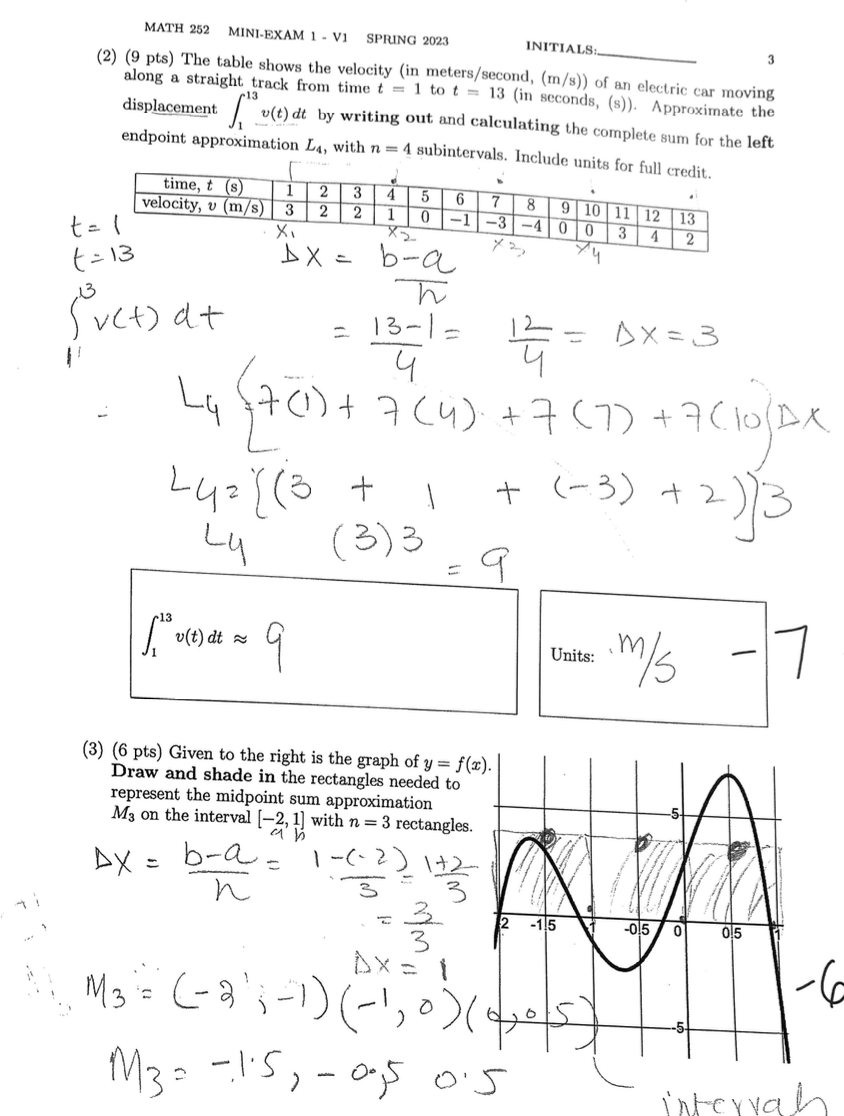 MATH 252 MINI-EXAM 1 - V1 SPRING 2023 INITIALS: 3
(2) (9 pts) The table shows the velocity (in meters/second, (m/s)) of an electric car moving
along a straight track from time t = 1 to t = 13 (in seconds, (s)). Approximate the
displacement ∫₁¹³ v(t) dt by writing out and calculating the complete sum for the left
endpoint approximation L₄, with n = 4 subintervals. Include units for full credit.
time, t (s) 1 2 3 4 5 6 7 8 9 10 11 12 13
velocity, v (m/s) 3 2 2 1 0 −1 −3 −4 0 0 3 4 2
x₁ x₂ x₃ x₄
t = 1
t = 13
Δx = b-a
n
∫₁¹³ v(t) dt
= 13-1 = 12 = Δx = 3
4 4
= L4 {7(1) + 7(4) + 7(7) + 7(10} Δx
L4 = {(3 + 1 + (-3) + 2)]3
L4 (3)3 = 9
∫₁¹³ v(t) dt ≈ 9
Units: m/s -7
(3) (6 pts) Given to the right is the graph of y = f(x).
Draw and shade in the rectangles needed to
represent the midpoint sum approximation
M₃ on the interval [−2, 1] with n = 3 rectangles.
a b
Δx = b-a = 1-(-2) = 1+2
n 3 3
= 3
3
Δx = 1
M3 = (-2, -1)(-1, 0)(0, 0.5)
M3 = -1.5, -0.5 0.5
intervals
5
2 -1.5 -1 -0.5 0 0.5 1
-5
-6